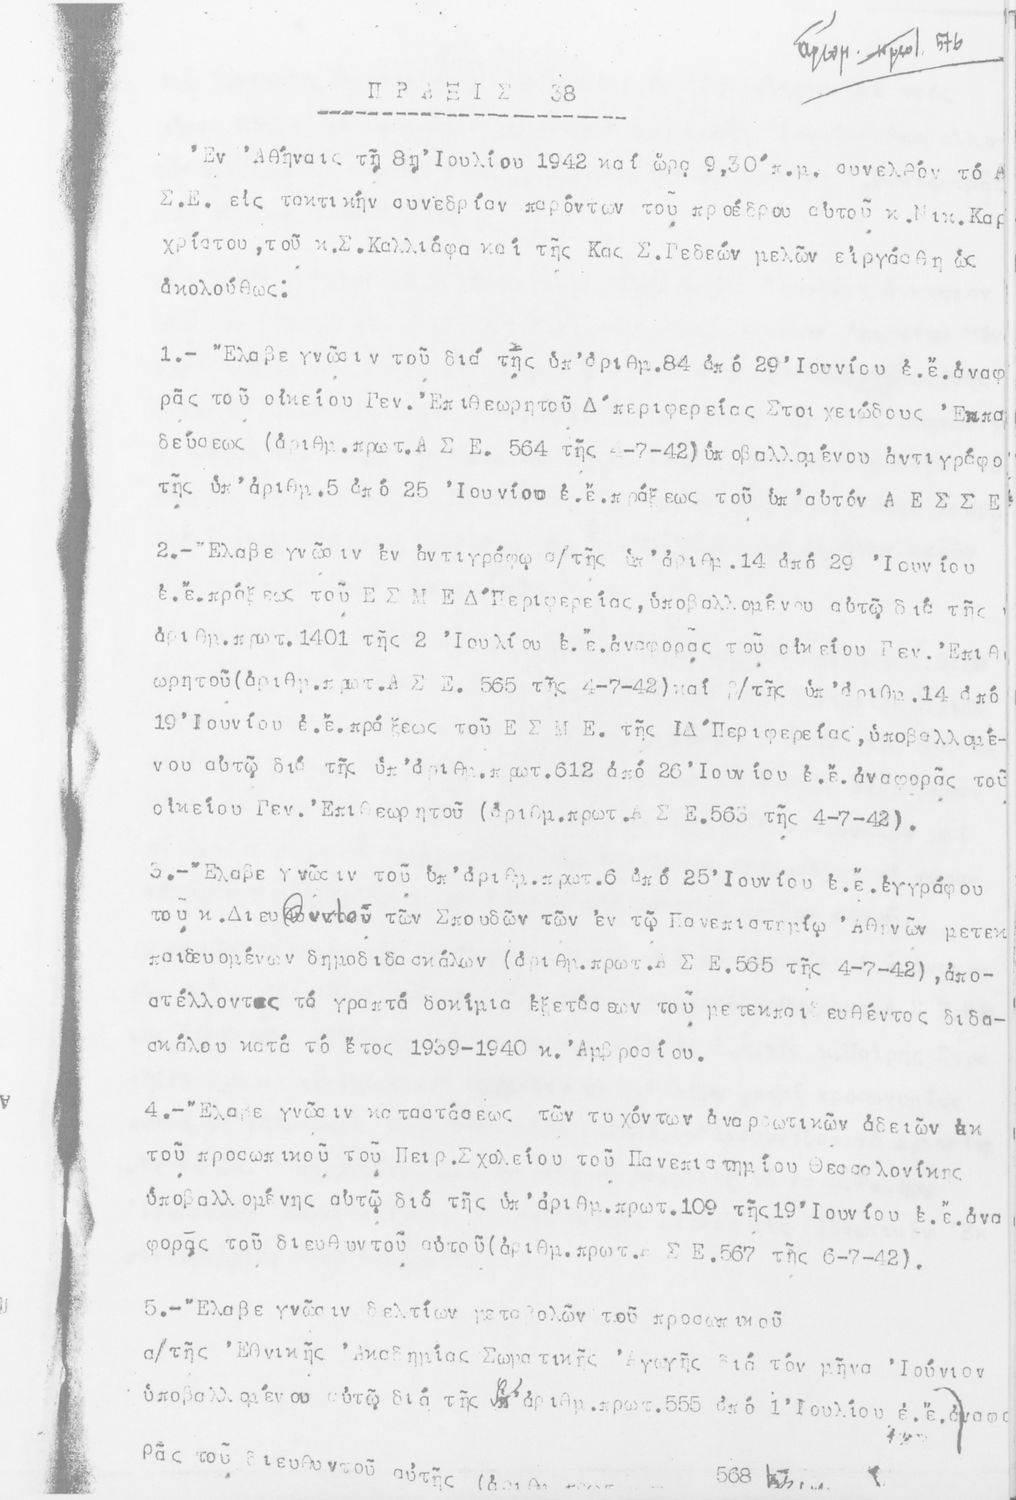 ἀριθμ. πρωτ. 576
ΠΡΑΞΙΣ 38
Ἐν Ἀθήναις τῇ 8ῃ Ἰουλίου 1942 καί ὥρᾳ 9,30΄π.μ. συνελθόν τό Α
Σ.Ε. εἰς τακτικήν συνεδρίαν παρόντων τοῦ προέδρου αὐτοῦ κ.Νικ.Καρ
χρίστου,τοῦ κ.Σ.Καλλιάφα καί τῆς Κας Σ.Γεδεών μελῶν εἰργάσθη ὡς
ἀκολούθως:
1.- Ἔλαβε γνῶσιν τοῦ διά τῆς ὑπ'ἀριθμ.84 ἀπό 29 Ἰουνίου ἐ.ἔ.ἀναφ
ρᾶς τοῦ οἰκείου Γεν.Ἐπιθεωρητοῦ Δ΄περιφερείας Στοιχειώδους Ἐκπαι
δεύσεως (ἀριθμ.πρωτ.Α Σ Ε. 564 τῆς 4-7-42)ὑποβαλλομένου ἀντιγράφο
τῆς ὑπ'ἀριθμ.5 ἀπό 25 Ἰουνίου ἐ.ἔ.πράξεως τοῦ ὑπ'αὐτόν Α Ε Σ Σ Ε
2.-Ἔλαβε γνῶσιν ἐν ἀντιγράφῳ α/τῆς ὑπ'ἀριθμ.14 ἀπό 29 Ἰουνίου
ἐ.ἔ.πράξεως τοῦ Ε Σ Μ Ε Δ΄Περιφερείας,ὑποβαλλομένου αὐτῷ διά τῆς
ἀριθμ.πρωτ.1401 τῆς 2 Ἰουλίου ἐ.ἔ.ἀναφορᾶς τοῦ οἰκείου Γεν.Ἐπιθε
ωρητοῦ(ἀριθμ.πρωτ.Α Σ Ε. 565 τῆς 4-7-42)καί β/τῆς ὑπ'ἀριθμ.14 ἀπό
19 Ἰουνίου ἐ.ἔ.πράξεως τοῦ Ε Σ Μ Ε. τῆς ΙΔ΄Περιφερείας,ὑποβαλλομέ-
νου αὐτῷ διά τῆς ὑπ'ἀριθμ.πρωτ.612 ἀπό 26 Ἰουνίου ἐ.ἔ.ἀναφορᾶς τοῦ
οἰκείου Γεν.Ἐπιθεωρητοῦ (ἀριθμ.πρωτ.Α Σ Ε.563 τῆς 4-7-42).
3.-Ἔλαβε γνῶσιν τοῦ ὑπ'ἀριθμ.πρωτ.6 ἀπό 25 Ἰουνίου ἐ.ἔ.ἐγγράφου
τοῦ κ.Διευθυντοῦ τῶν Σπουδῶν τῶν ἐν τῷ Πανεπιστημίῳ Ἀθηνῶν μετεκ
παιδευομένων δημοδιδασκάλων (ἀριθμ.πρωτ.Α Σ Ε.565 τῆς 4-7-42),ἀπο-
στέλλοντος τά γραπτά δοκίμια ἐξετάσεων τοῦ μετεκπαιδευθέντος διδα-
σκάλου κατά τό ἔτος 1939-1940 κ.Ἀμβροσίου.
4.-Ἔλαβε γνῶσιν καταστάσεως τῶν τυχόντων ἀναρρωτικῶν ἀδειῶν ἐκ
τοῦ προσωπικοῦ τοῦ Πειρ.Σχολείου τοῦ Πανεπιστημίου Θεσσαλονίκης
ὑποβαλλομένης αὐτῷ διά τῆς ὑπ'ἀριθμ.πρωτ.109 τῆς19 Ἰουνίου ἐ.ἔ.ἀνα
φορᾶς τοῦ διευθυντοῦ αὐτοῦ(ἀριθμ.πρωτ.Α Σ Ε.567 τῆς 6-7-42).
5.-Ἔλαβε γνῶσιν δελτίων μεταβολῶν τοῦ προσωπικοῦ
α/τῆς Ἐθνικῆς Ἀκαδημίας Σωματικῆς Ἀγωγῆς διά τόν μῆνα Ἰούνιον
ὑποβαλλομένου αὐτῷ διά τῆς ὑπ'ἀριθμ.πρωτ.555 ἀπό 1 Ἰουλίου ἐ.ἔ.ἀναφο
ρᾶς τοῦ διευθυντοῦ αὐτῆς (ἀριθμ 568